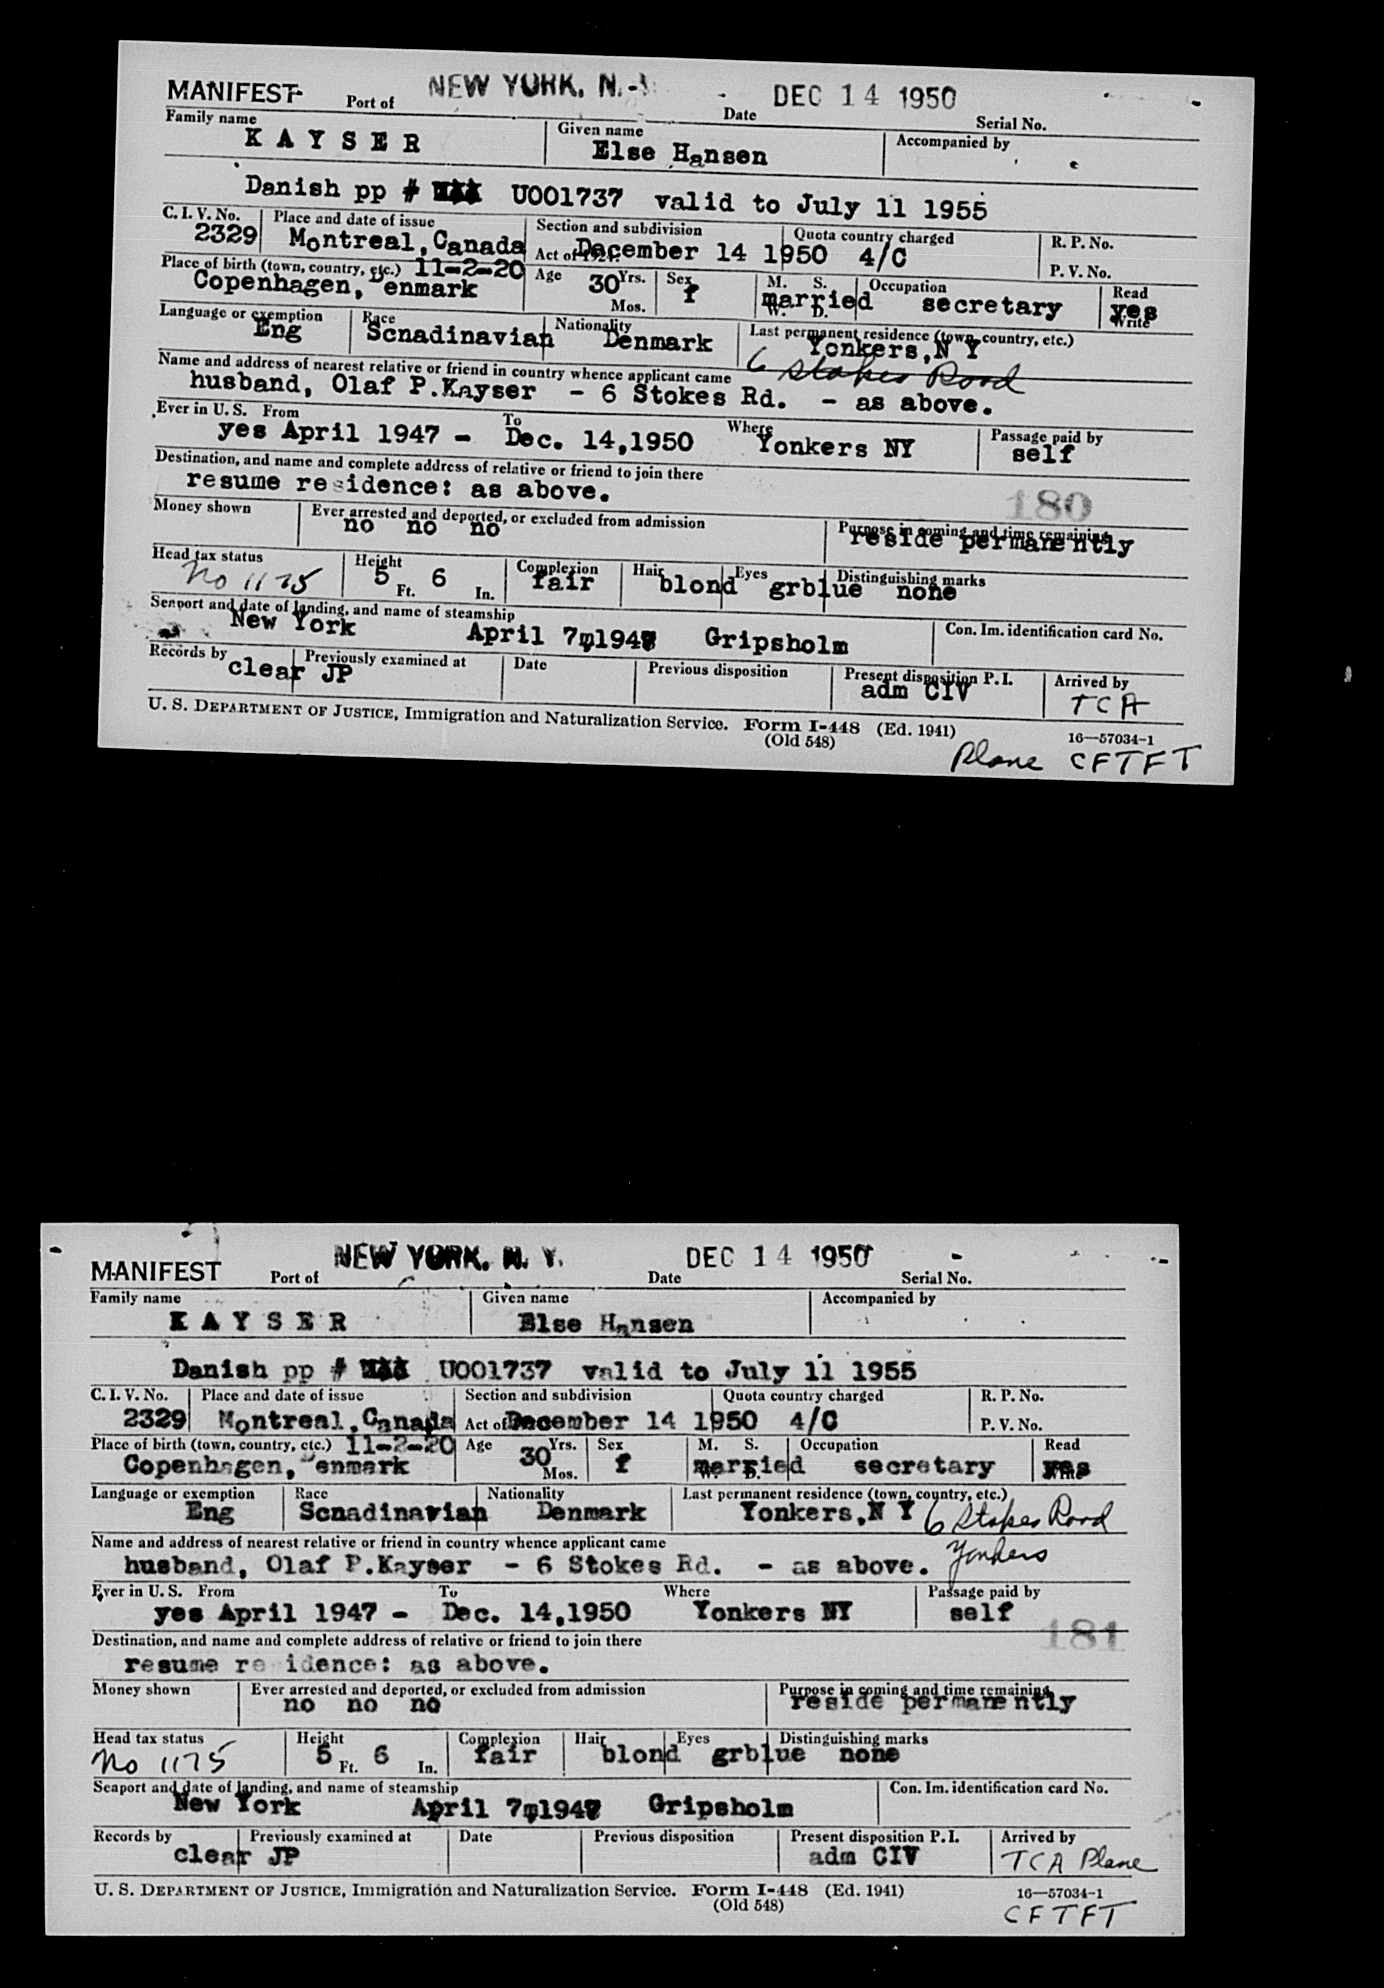 MANIFEST Port of NEW YORK, N. Y. Date DEC 14 1950 Serial No.
Family name Given name Accompanied by
K A Y S E R Else Hansen
Danish pp # U001737 valid to July 11 1955
C. I. V. No. Place and date of issue Section and subdivision Quota country charged R. P. No.
2329 Montreal, Canada Act of December 14 1950 4/C P. V. No.
Place of birth (town, country, etc.) 11-2-20 Age 30 Yrs. Mos. Sex M. S. W. D. Occupation Read Write
Copenhagen, Denmark f married secretary yes
Language or exemption Race Nationality Last permanent residence (town, country, etc.)
Eng Scnadinavian Denmark Yonkers, N Y
6 Stokes Road
Name and address of nearest relative or friend in country whence applicant came
husband, Olaf P.Kayser - 6 Stokes Rd. - as above.
Ever in U. S. From To Where Passage paid by
yes April 1947 - Dec. 14,1950 Yonkers NY self
Destination, and name and complete address of relative or friend to join there
resume residence: as above. 180
Money shown Ever arrested and deported, or excluded from admission Purpose in coming and time remaining
no no no reside permanently
Head tax status Height Complexion Hair Eyes Distinguishing marks
No 1175 5 Ft. 6 In. fair blond grblue none
Seaport and date of landing, and name of steamship Con. Im. identification card No.
New York April 7, 1947 Gripsholm
Records by Previously examined at Date Previous disposition Present disposition P. I. Arrived by
clear JP adm CIV TCA
U. S. DEPARTMENT OF JUSTICE, Immigration and Naturalization Service. Form I-448 (Ed. 1941) 16—57034-1
(Old 548) Plane CFTFT
MANIFEST Port of NEW YORK, N. Y. Date DEC 14 1950 Serial No.
Family name Given name Accompanied by
K A Y S E R Else Hansen
Danish pp # U001737 valid to July 11 1955
C. I. V. No. Place and date of issue Section and subdivision Quota country charged R. P. No.
2329 Montreal, Canada Act of December 14 1950 4/C P. V. No.
Place of birth (town, country, etc.) 11-2-20 Age 30 Yrs. Mos. Sex M. S. W. D. Occupation Read Write
Copenhagen, Denmark f married secretary yes
Language or exemption Race Nationality Last permanent residence (town, country, etc.)
Eng Scnadinavian Denmark Yonkers, N Y 6 Stokes Road
Name and address of nearest relative or friend in country whence applicant came Yonkers
husband, Olaf P.Kayser - 6 Stokes Rd. - as above.
Ever in U. S. From To Where Passage paid by
yes April 1947 - Dec. 14,1950 Yonkers NY self
Destination, and name and complete address of relative or friend to join there 181
resume residence: as above.
Money shown Ever arrested and deported, or excluded from admission Purpose in coming and time remaining
no no no reside permanently
Head tax status Height Complexion Hair Eyes Distinguishing marks
No 1175 5 Ft. 6 In. fair blond grblue none
Seaport and date of landing, and name of steamship Con. Im. identification card No.
New York April 7, 1947 Gripsholm
Records by Previously examined at Date Previous disposition Present disposition P. I. Arrived by
clear JP adm CIV TCA Plane
U. S. DEPARTMENT OF JUSTICE, Immigration and Naturalization Service. Form I-448 (Ed. 1941) 16—57034-1
(Old 548) CFTFT